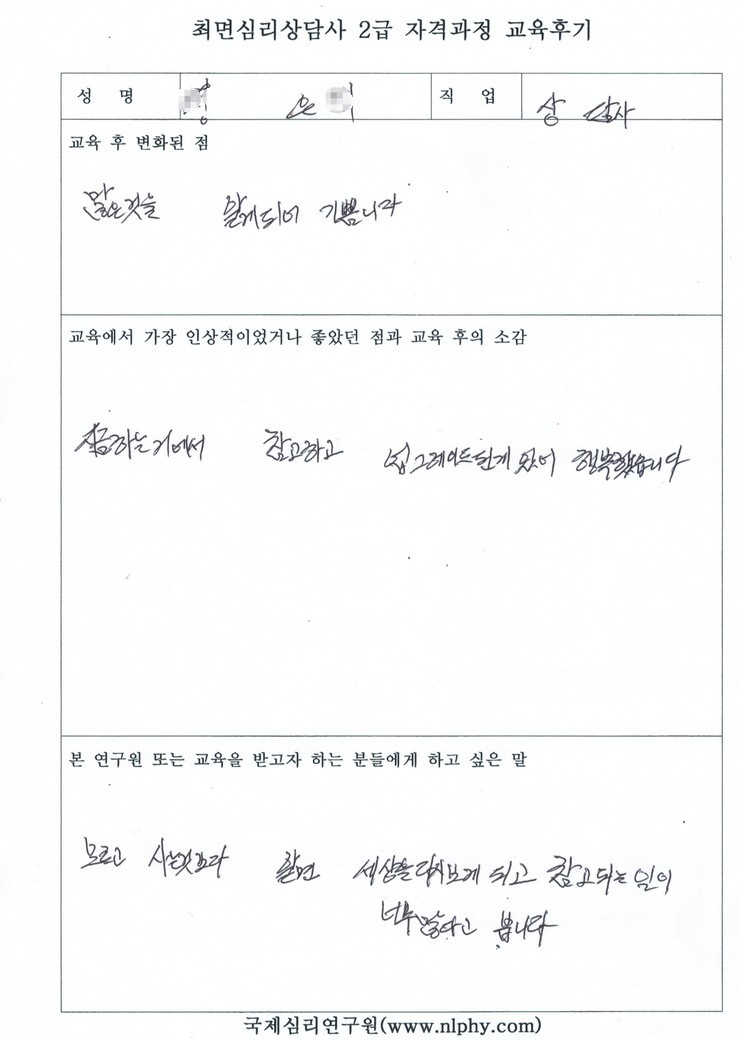 최면심리상담사 2급 자격과정 교육후기
성 명 은 직 업 상담사
교육 후 변화된 점
많은것을 알게되어 기쁩니다
교육에서 가장 인상적이었거나 좋았던 점과 교육 후의 소감
지금하는거에서 참고하고 업그레이드된게 있어 행복했습니다
본 연구원 또는 교육을 받고자 하는 분들에게 하고 싶은 말
모르고 사는것보다 알면 세상을 다시보게 되고 참고되는 일이
너무많다고 봅니다
국제심리연구원(www.nlphy.com)